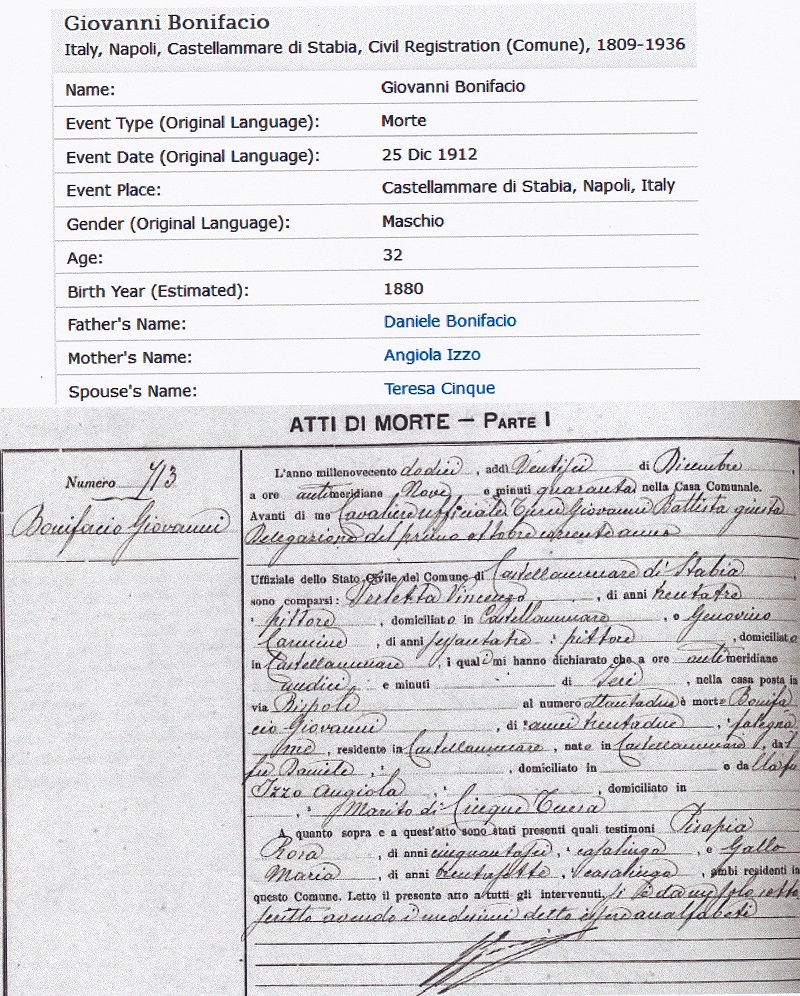 Giovanni Bonifacio
Italy, Napoli, Castellammare di Stabia, Civil Registration (Comune), 1809-1936
Name: Giovanni Bonifacio
Event Type (Original Language): Morte
Event Date (Original Language): 25 Dic 1912
Event Place: Castellammare di Stabia, Napoli, Italy
Gender (Original Language): Maschio
Age: 32
Birth Year (Estimated): 1880
Father's Name: Daniele Bonifacio
Mother's Name: Angiola Izzo
Spouse's Name: Teresa Cinque
ATTI DI MORTE — PARTE I
Numero 713
Bonifacio Giovanni
L'anno millenovecento dodici, addì Ventisei di Dicembre,
a ore antimeridiane Nove e minuti quaranta, nella Casa Comunale.
Avanti di me Cavaliere ufficiale Giovanni Battista giusta
Delegazione del primo ottobre corrente anno
Uffiziale dello Stato Civile del Comune di Castellammare di Stabia
sono comparsi: Vincenzo, di anni trentatre
pittore, domiciliato in Castellammare, e Genovino
Carmine, di anni sessantatre, pittore, domiciliato
in Castellammare, i quali mi hanno dichiarato che a ore antimeridiane
undici e minuti di Ieri, nella casa posta in
via Rispoli al numero ottantadue è morto Bonifa
cio Giovanni, di anni trentadue, falegna
me, residente in Castellammare, nato in Castellammare, dal
fu Daniele, domiciliato in e dalla fu
Izzo Angiola, domiciliata in
, Marito di Cinque
A quanto sopra e a quest'atto sono stati presenti quali testimoni Pisapia
Rosa, di anni cinquantasei, casalinga, e Gallo
Maria, di anni trentasette, casalinga, ambi residenti in
questo Comune. Letto il presente atto a tutti gli intervenuti, si è da me solo sotto
scritto avendo i medesimi detto essere analfabeti